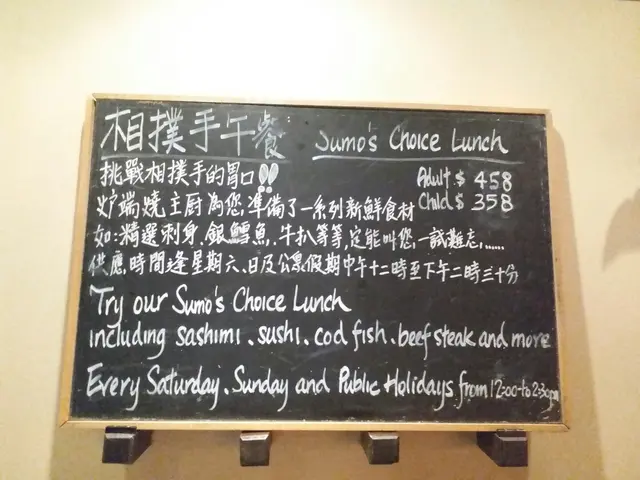 相撲手午餐 Sumo's Choice Lunch
挑戰相撲手的胃口!! Adult $ 458
炉端燒主厨為您準備了一系列新鮮食材 Child $ 358
如:精選刺身,銀鱈魚,牛扒等等,定能叫您一試難忘......
供應時間逢星期六、日及公眾假期中午十二時至下午二時三十分
Try our Sumo's Choice Lunch
including sashimi . sushi . cod fish . beef steak and more
Every Saturday . Sunday and Public Holidays from 12:00-to 2:30pm